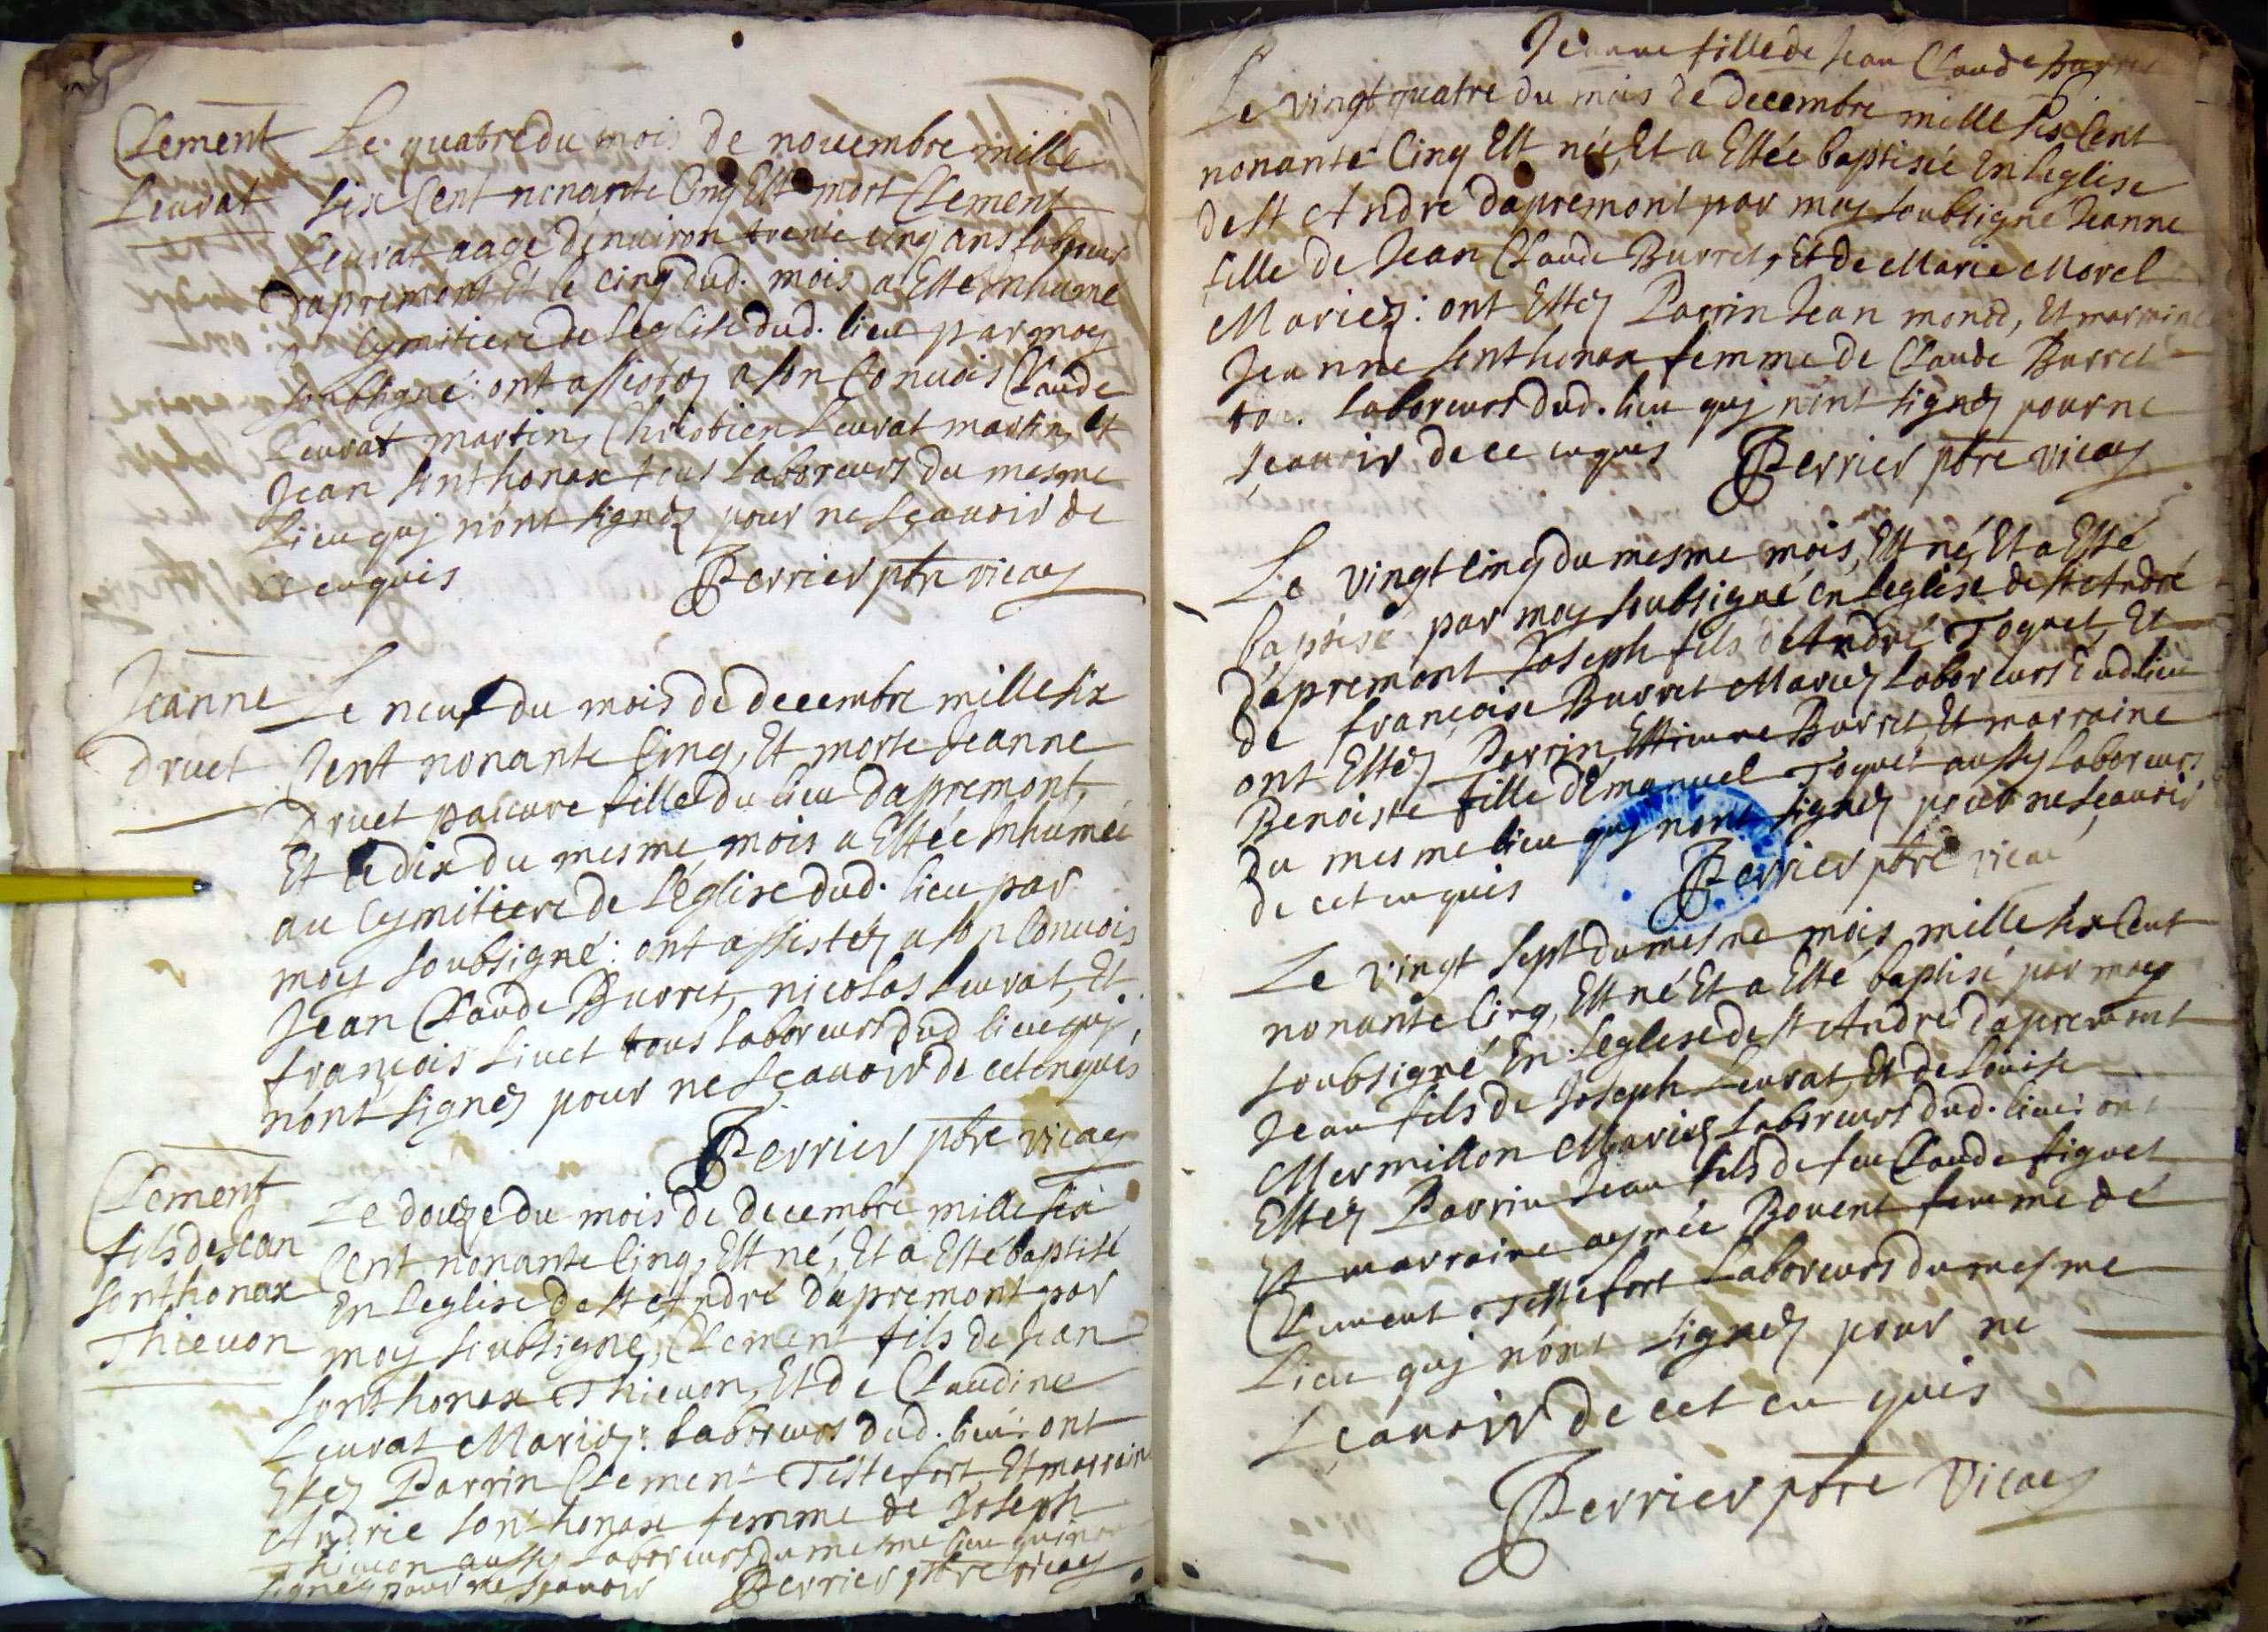 Clement
Leurat
Le quatre du mois de nouembre mille
six Cent nonante Cinq Est mort Clement
Leurat aagé d'enuiron trente cinq ans laboreur
d'apremont Et le cinq dud. mois a Esté Inhumé
Cymitiere de l'eglise dud. lieu par moy
soubsigné: ont assistez a son Conuois Claude
Leurat martin, Christien Leurat martin, Et
Jean Sonthonax tous Laboreurs du mesme
Lieu quj n'ont signéz pour ne sçauoir de
ce enquis Perrier pbre vicaj
Jeanne
Druet
Le neuf du mois de decembre mille six
Cent nonante Cinq, Et morte Jeanne
Druet pauure fille du lieu d'apremont,
Et le dix du mesme mois a Estée Inhumée
au Cymitiere de l'Eglise dud. lieu par
moy soubsigné: ont assistez a son Conuois
Jean Claude Burret, nicolas Leurat, Et
françois Liuet tous laboreurs dud lieu quj
n'ont signéz pour ne sçauoir de cet enquis
Perrier pbre vicaj
Clement
fils de Jean
Sonthonax
Thieuon
Le douze du mois de decembre mille six
Cent nonante Cinq, Est né, Et a Esté baptisé
En l'eglise de st André d'apremont par
moy soubsigné, Clement fils de Jean
Sonthonax Thieuon, Et de Claudine
Leurat Mariez: laboreurs dud. lieu: ont
Estez Parrin Clement Testefort, Et marraine
Andrie Sonthonax femme de Joseph
Thieuon aussy Laboreurs du mesme lieu qui n'ont
signéz pour ne sçauoir Perrier pbre vicaj
Jeanne fille de Jean Claude Burret
Le vingt quatre du mois de decembre mille six Cent
nonante Cinq Est née, Et a Estée baptisée En l'eglise
de st André d'apremont par moy soubsigné Jeanne
fille de Jean Claude Burret, Et de Marie Morel
Mariez: ont Estez Parrin Jean , Et marraine
Jeanne Sonthonax femme de Claude Burret
Laboreurs dud. lieu quj n'ont signéz pour ne
sçauoir de ce enquis Perrier pbre vicaj
Le vingt cinq du mesme mois, Est né, Et a Esté
baptisé par moy soubsigné en l'eglise de st André
d'apremont Joseph fils d'André Toquet, Et
de françoise Burret Mariez Laboreurs dud lieu
ont Estez Parrin, Estienne Burret, Et marraine
Benoiste fille d'Emanuel Toquet aussy Laboreurs
du mesme lieu quj n'ont signéz pour ne sçauoir
de cet enquis Perrier pbre vicai
Le vingt sept du mesme mois mille six Cent
nonante Cinq, Est né Et a Esté baptisé par moy
soubsigné En l'eglise de st André d'apremont
Jean fils de Joseph Leurat, Et de Louise
Mermillon Mariez Laboreurs dud. lieu: ont
Estez Parrin Jean fils de feu Claude Figuet
Et marraine aymée Bouent femme de
Clement Testefort Laboreurs du mesme
Lieu quj n'ont signéz pour ne
sçauoir de cet enquis
Perrier pbre Vicaj